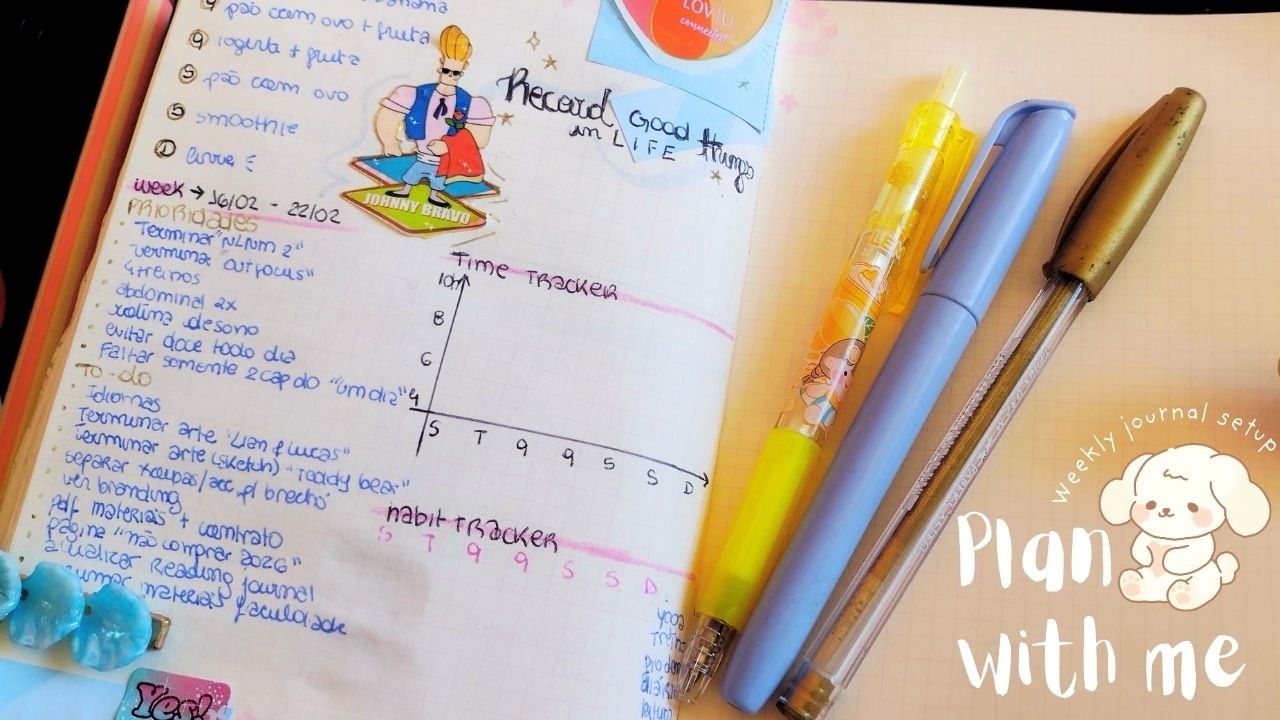 banana
Q pão com ovo + fruta
Q iogurte + fruta
S pão com ovo
S smoothie
D livre
week → 16/02 - 22/02
PRIORIDADES
Terminar "NLNM 2"
terminar "outfocus"
4 treinos
abdominal 2x
rotina de sono
evitar doce todo dia
Faltar somente 2 cap do "um dia"
TO-do
Idiomas
Terminar arte "Lian & Lucas"
terminar arte (sketch) "Teddy bear"
separar roupas/acc. p/ brechó
ver branding
pdf materiais + contrato
página "não comprar 2026"
atualizar Reading journal
materiais faculdade
Yes!
JOHNNY BRAVO
LOV U
connected
Record Good things
in LIFE
Time TRACKER
10h
8
6
4
S T Q Q S S D
habit TRACKER
S T Q Q S S D
yoga
treino
FLEX
weekly journal setup
Plan
with me